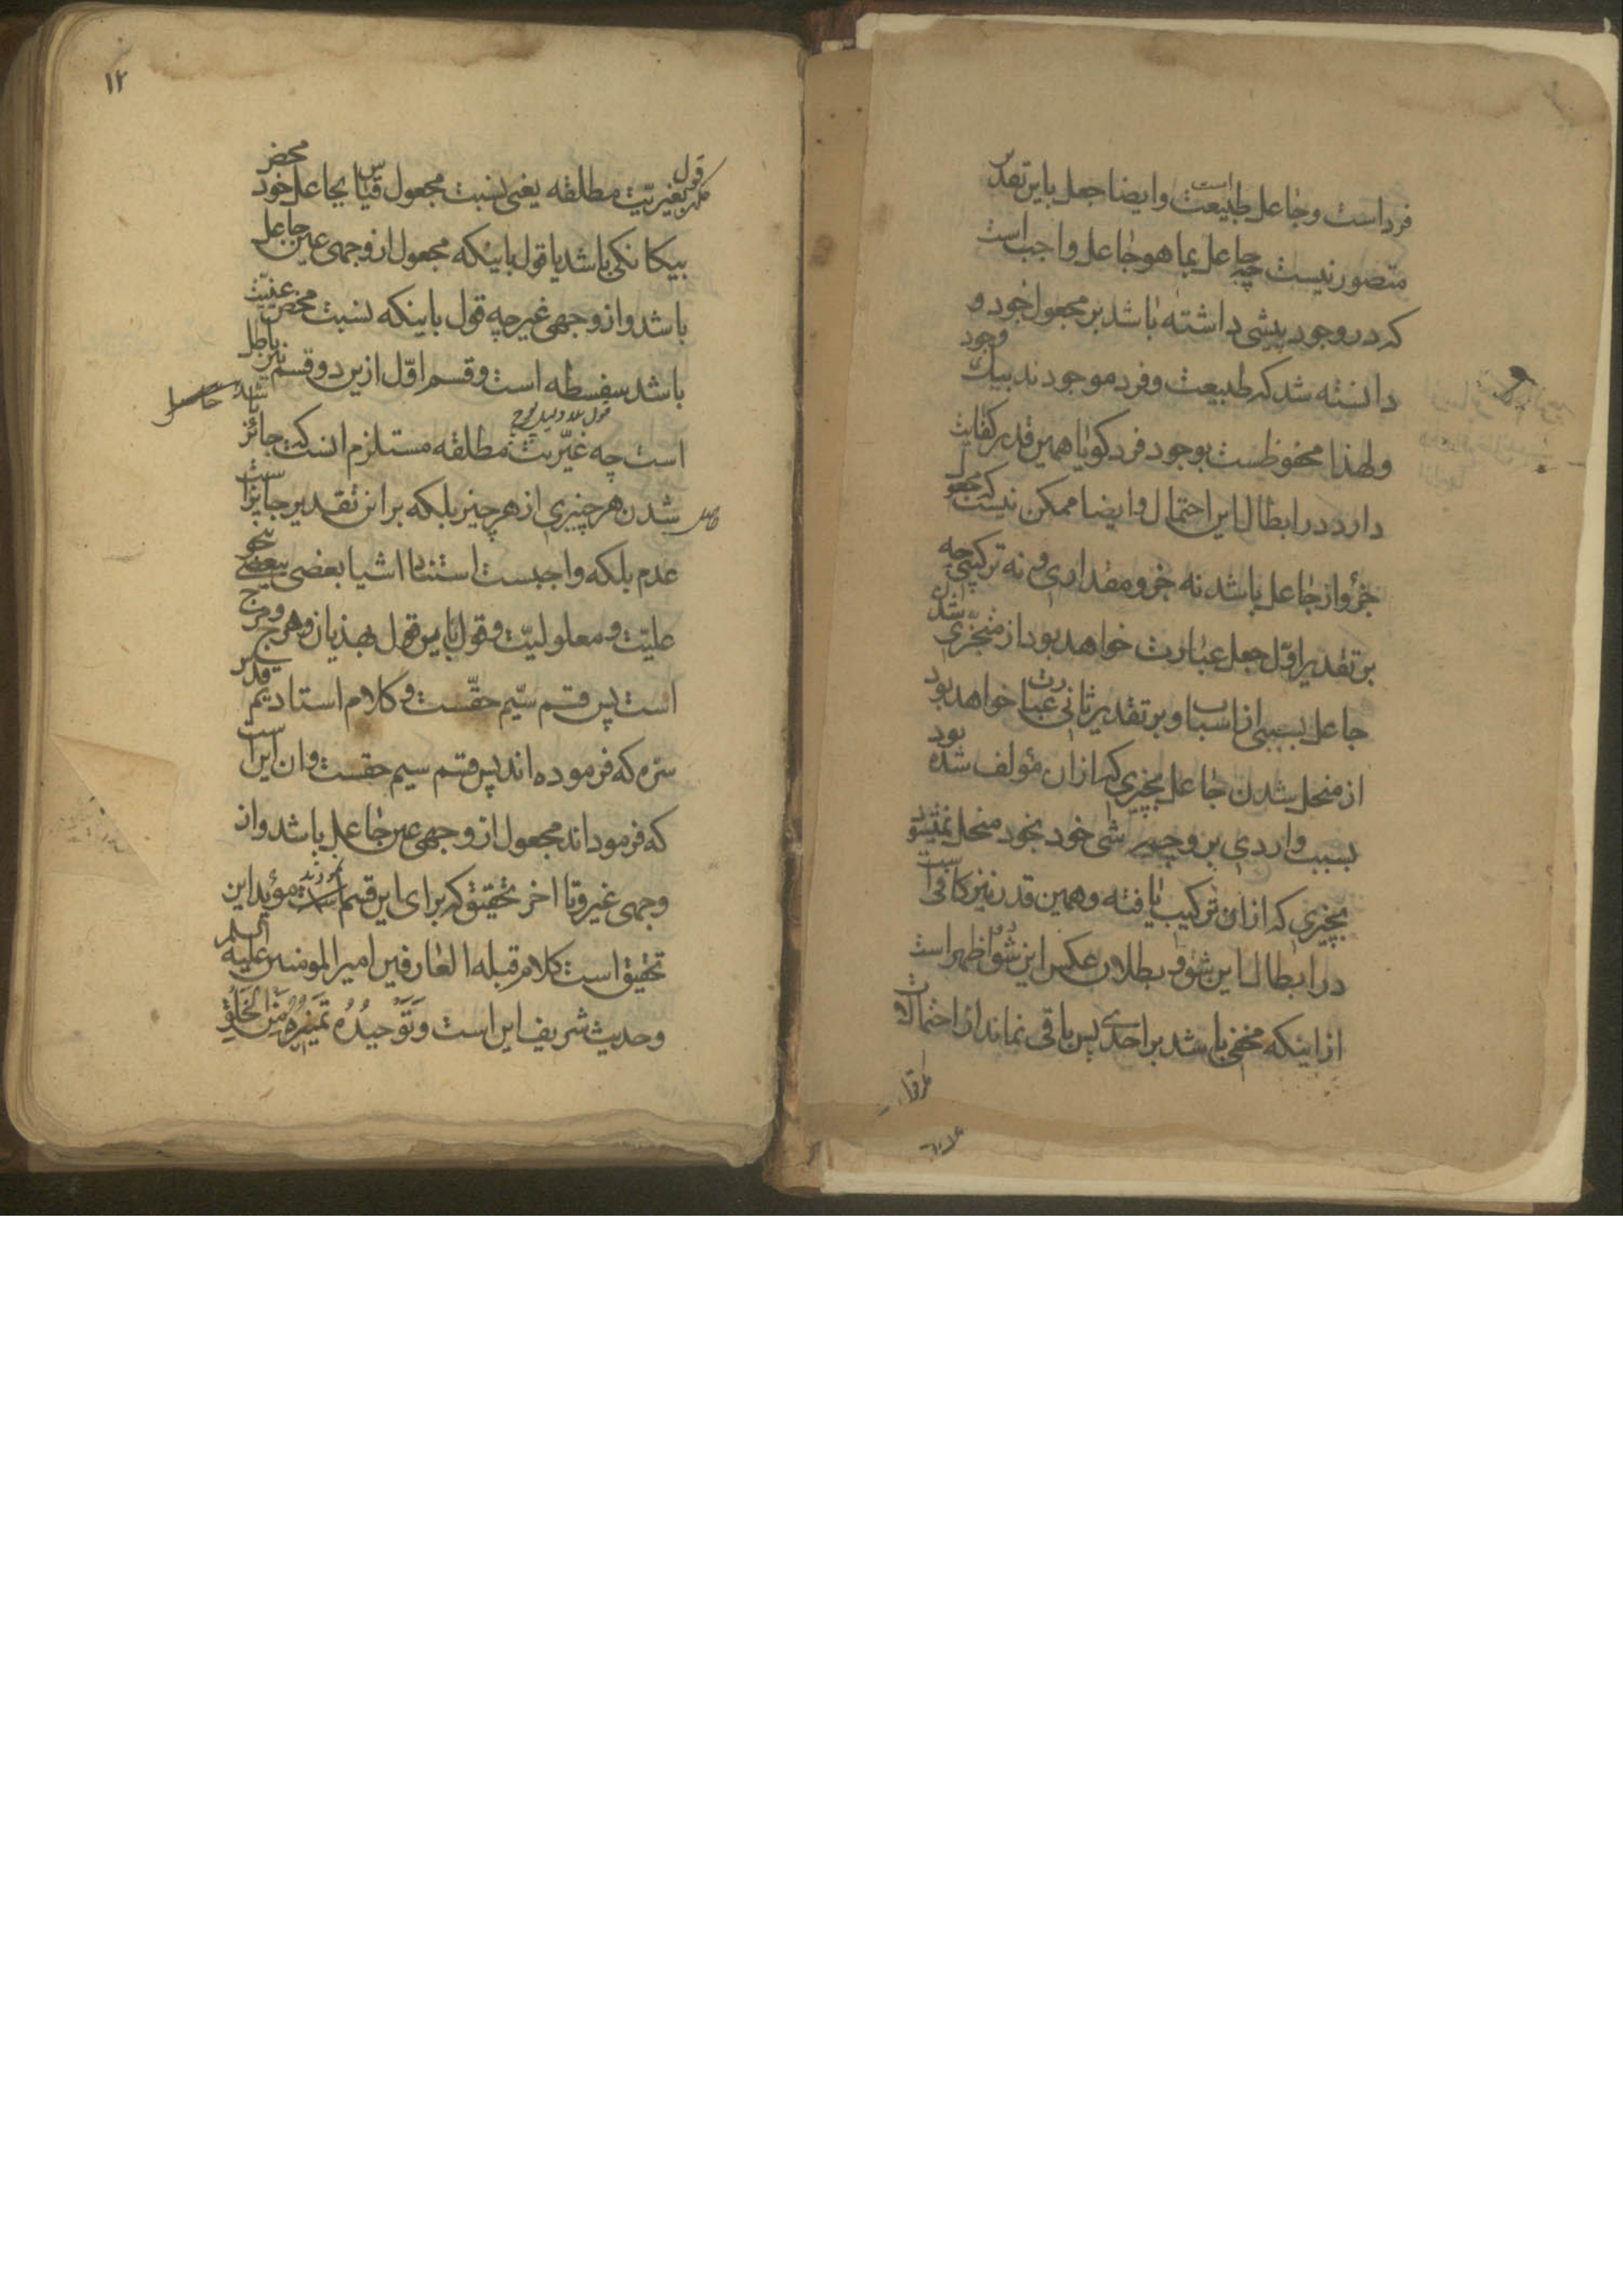 فرداست وجاعل طبیعت است وایضا جعل باین تقدیر
متصور نیست چه جاعل بما هو جاعل واجب است
که در وجود پیشی داشته باشد بر مجعول خود و
دانسته شد که طبیعت وفرد موجودند بیک وجود
ولهذا محفوظست بوجود فرد کویا همین قدر کفایت
دارد در ابطال این احتمال وایضا ممکن نیست که مجعول
جزؤ از جاعل باشد نه جزو مقداری ونه ترکیبی چه
بر تقدیر اول جعل عبارت خواهد بود از متجزی شدن
جاعل بسببی از اسباب وبر تقدیر ثانی عبارت خواهد بود
از منحل شدن جاعل بچیزی که از ان مؤلف شده بود
بسبب واردی برو چه شی خود بخود منحل نمیشود
بچیزی که از ان ترکیب یافته وهمین قدر نیز کافی است
در ابطال این شق و بطلان عکس این شق اظهر است
از اینکه مخفی باشد بر احدی پس باقی نماند از احتمالات
۱۲
قول بغیریت مطلقه یعنی نسبت مجعول قیاس بجاعل خود محض
بیکانکی باشد یا قول باینکه مجعول از وجهی عین جاعل
باشد واز وجهی غیر چه قول باینکه نسبت محض عینیت
باشد سفسطه است وقسم اول ازین دو قسم نیز باطل
است چه غیریت مطلقه مستلزم انست که جائز باشد
شدن هر چیزی از هر چیز بلکه بر این تقدیر جایز است
عدم بلکه واجبست استناد اشیا بعضی ببعضی بنحو
علیت ومعلولیت وقول باین قول هذیان وهرج ومرج
است پس قسم سیم حقست وکلام استادیم قدس
سره که فرموده اند پس قسم سیم حقست وان اینست
که فرمودهاند مجعول از وجهی عین جاعل باشد واز
وجهی غیر وتا اخر تحقیق که برای این قسم نمودند مؤید این
تحقیق است کلام قبله العارفین امیر المومنین علیه السلم
وحدیث شریف این است وَتَوَحیدُهُ تَمیَیزُهُ مِن خَلقِهِ